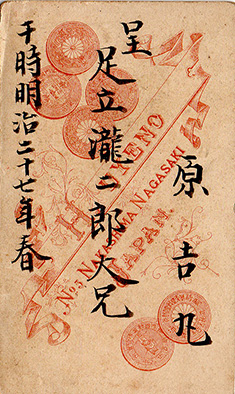 呈
足立瀧二郎大兄
原吉九
于時明治二十七年春
H. UYENO
No5 NAKASHIMA NAGASAKI
JAPAN.